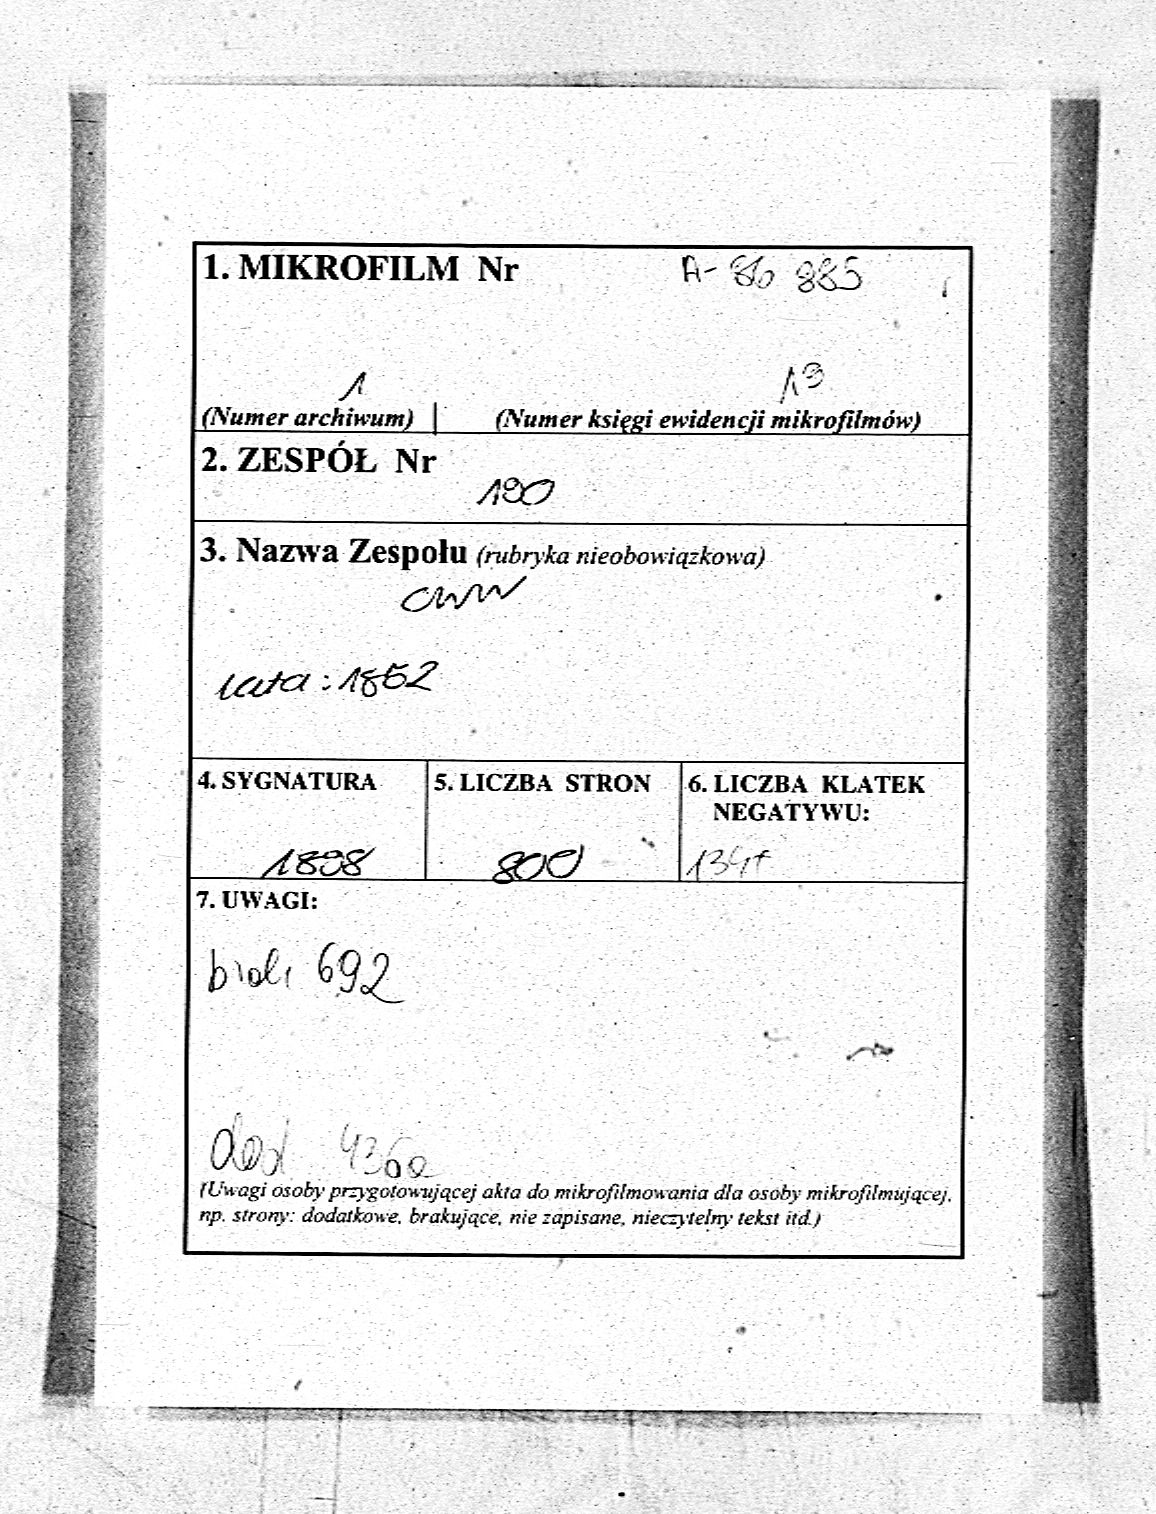 1. MIKROFILM Nr A-86 885
1 13
(Numer archiwum) (Numer księgi ewidencji mikrofilmów)
2. ZESPÓŁ Nr
190
3. Nazwa Zespołu (rubryka nieobowiązkowa)
CWW
lata: 1862
4. SYGNATURA 5. LICZBA STRON 6. LICZBA KLATEK
NEGATYWU:
1898 800
7. UWAGI:
692
dod 436a
(Uwagi osoby przygotowującej akta do mikrofilmowania dla osoby mikrofilmującej,
np. strony: dodatkowe, brakujące, nie zapisane, nieczytelny tekst itd.)